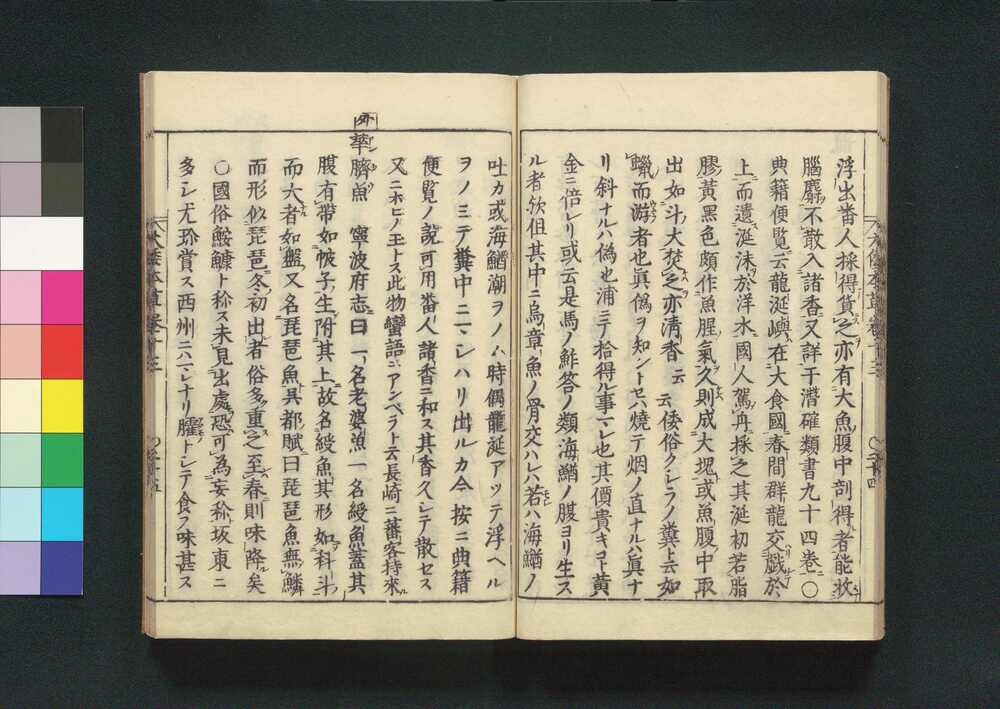 浮出蕃人採得貨之亦有大魚腹中剖得者能收
腦麝不散入諸香又詳于潛確類書九十四卷〇
典籍便覧云龍涎嶼在大食國春間群龍交戯於
上而遺涎沫於洋水國人駕舟採之其涎初若脂
膠黃黑色頗作魚腥氣久則成大塊或魚腹中取
出如斗大焚之亦清香云云倭俗クシラノ糞ト云如
蠟而游者也眞僞ヲ知ントセハ燒テ烟ノ直ナルハ眞ナ
リ斜ナルハ偽也浦ニテ拾得ル事マレ也其價貴キコト黄
金ニ倍レリ或云是馬ノ鮓答ノ類海鰌ノ腹ヨリ生ス
ル者欤但其中ニ烏章魚ノ骨交ハレハ若ハ海鰌ノ
吐カ或海鰌潮ヲノム時偶龍涎アツテ浮ヘル
ヲノミテ糞中ニマシハリ出ルカ今按ニ典籍
便覧ノ説可用蕃人諸香ニ和ス其香久シテ散セス
又ニホヒノ玉トス此物蠻語ニアンベラト云長崎ニ蕃客持來ル
外
華臍魚 寧波府志曰一名老婆魚一名綬魚蓋其
腹有帶如帔子生附其上故名綬魚其形如科斗
而大者如盤又名琵琶魚呉都賦曰琵琶魚無鱗
而形似琵琶冬初出者俗多重之至春則味降矣
〇國俗鮟鱇ト称ス未見出處恐可為妄称坂東ニ
多シ尤珍賞ス西州ニハマレナリ臛トシテ食フ味甚ス
大倭本草卷十三
〇二十四
大倭本草卷十三
〇二十五